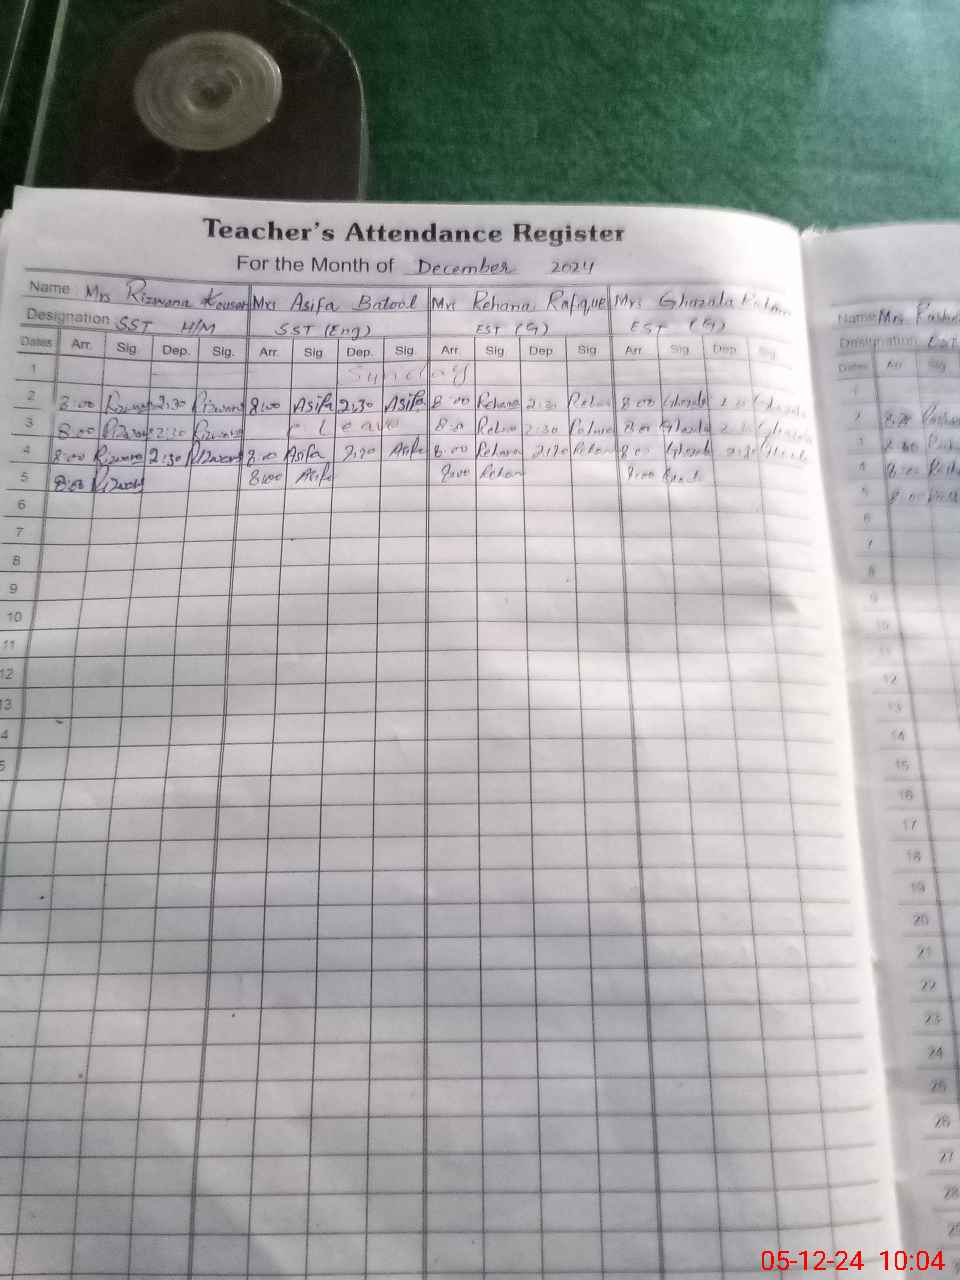 Teacher's Attendance Register
For the Month of December 2024
Name: Mrs Rizwana Kousar Mrs Asifa Batool Mrs Rehana Rafique Mrs Ghazala Name: Mrs
Designation SST H/M SST (Eng) EST (G) EST (G) Designation
Dates Arr. Sig. Dep. Sig. Arr. Sig. Dep. Sig. Arr. Sig. Dep. Sig. Arr. Sig. Dep. Sig. Dates Arr Sig
1 Sunday
2 8:00 Rizwana 2:30 Rizwana 8:00 Asifa 2:30 Asifa 8:00 Rehana 2:30 Rehana 8:00 Ghazala
3 8:00 Rizwana 2:30 Rizwana Leave Rehana 2:30 Rehana 8:00 Ghazala
4 8:00 Rizwana 2:30 Rizwana 8:00 Asifa 2:30 Asifa 8:00 Rehana 2:30 Rehana 8:00 Ghazala 2:30 Ghazala
5 8:00 Rizwana 8:00 Asifa 8:00 Rehana 8:00
6 6
7 7
8 8
9 9
10 10
11 11
12 12
13 13
4 14
5 15
16
17
18
19
20
21
22
23
24
25
26
27
28
05-12-24 10:04